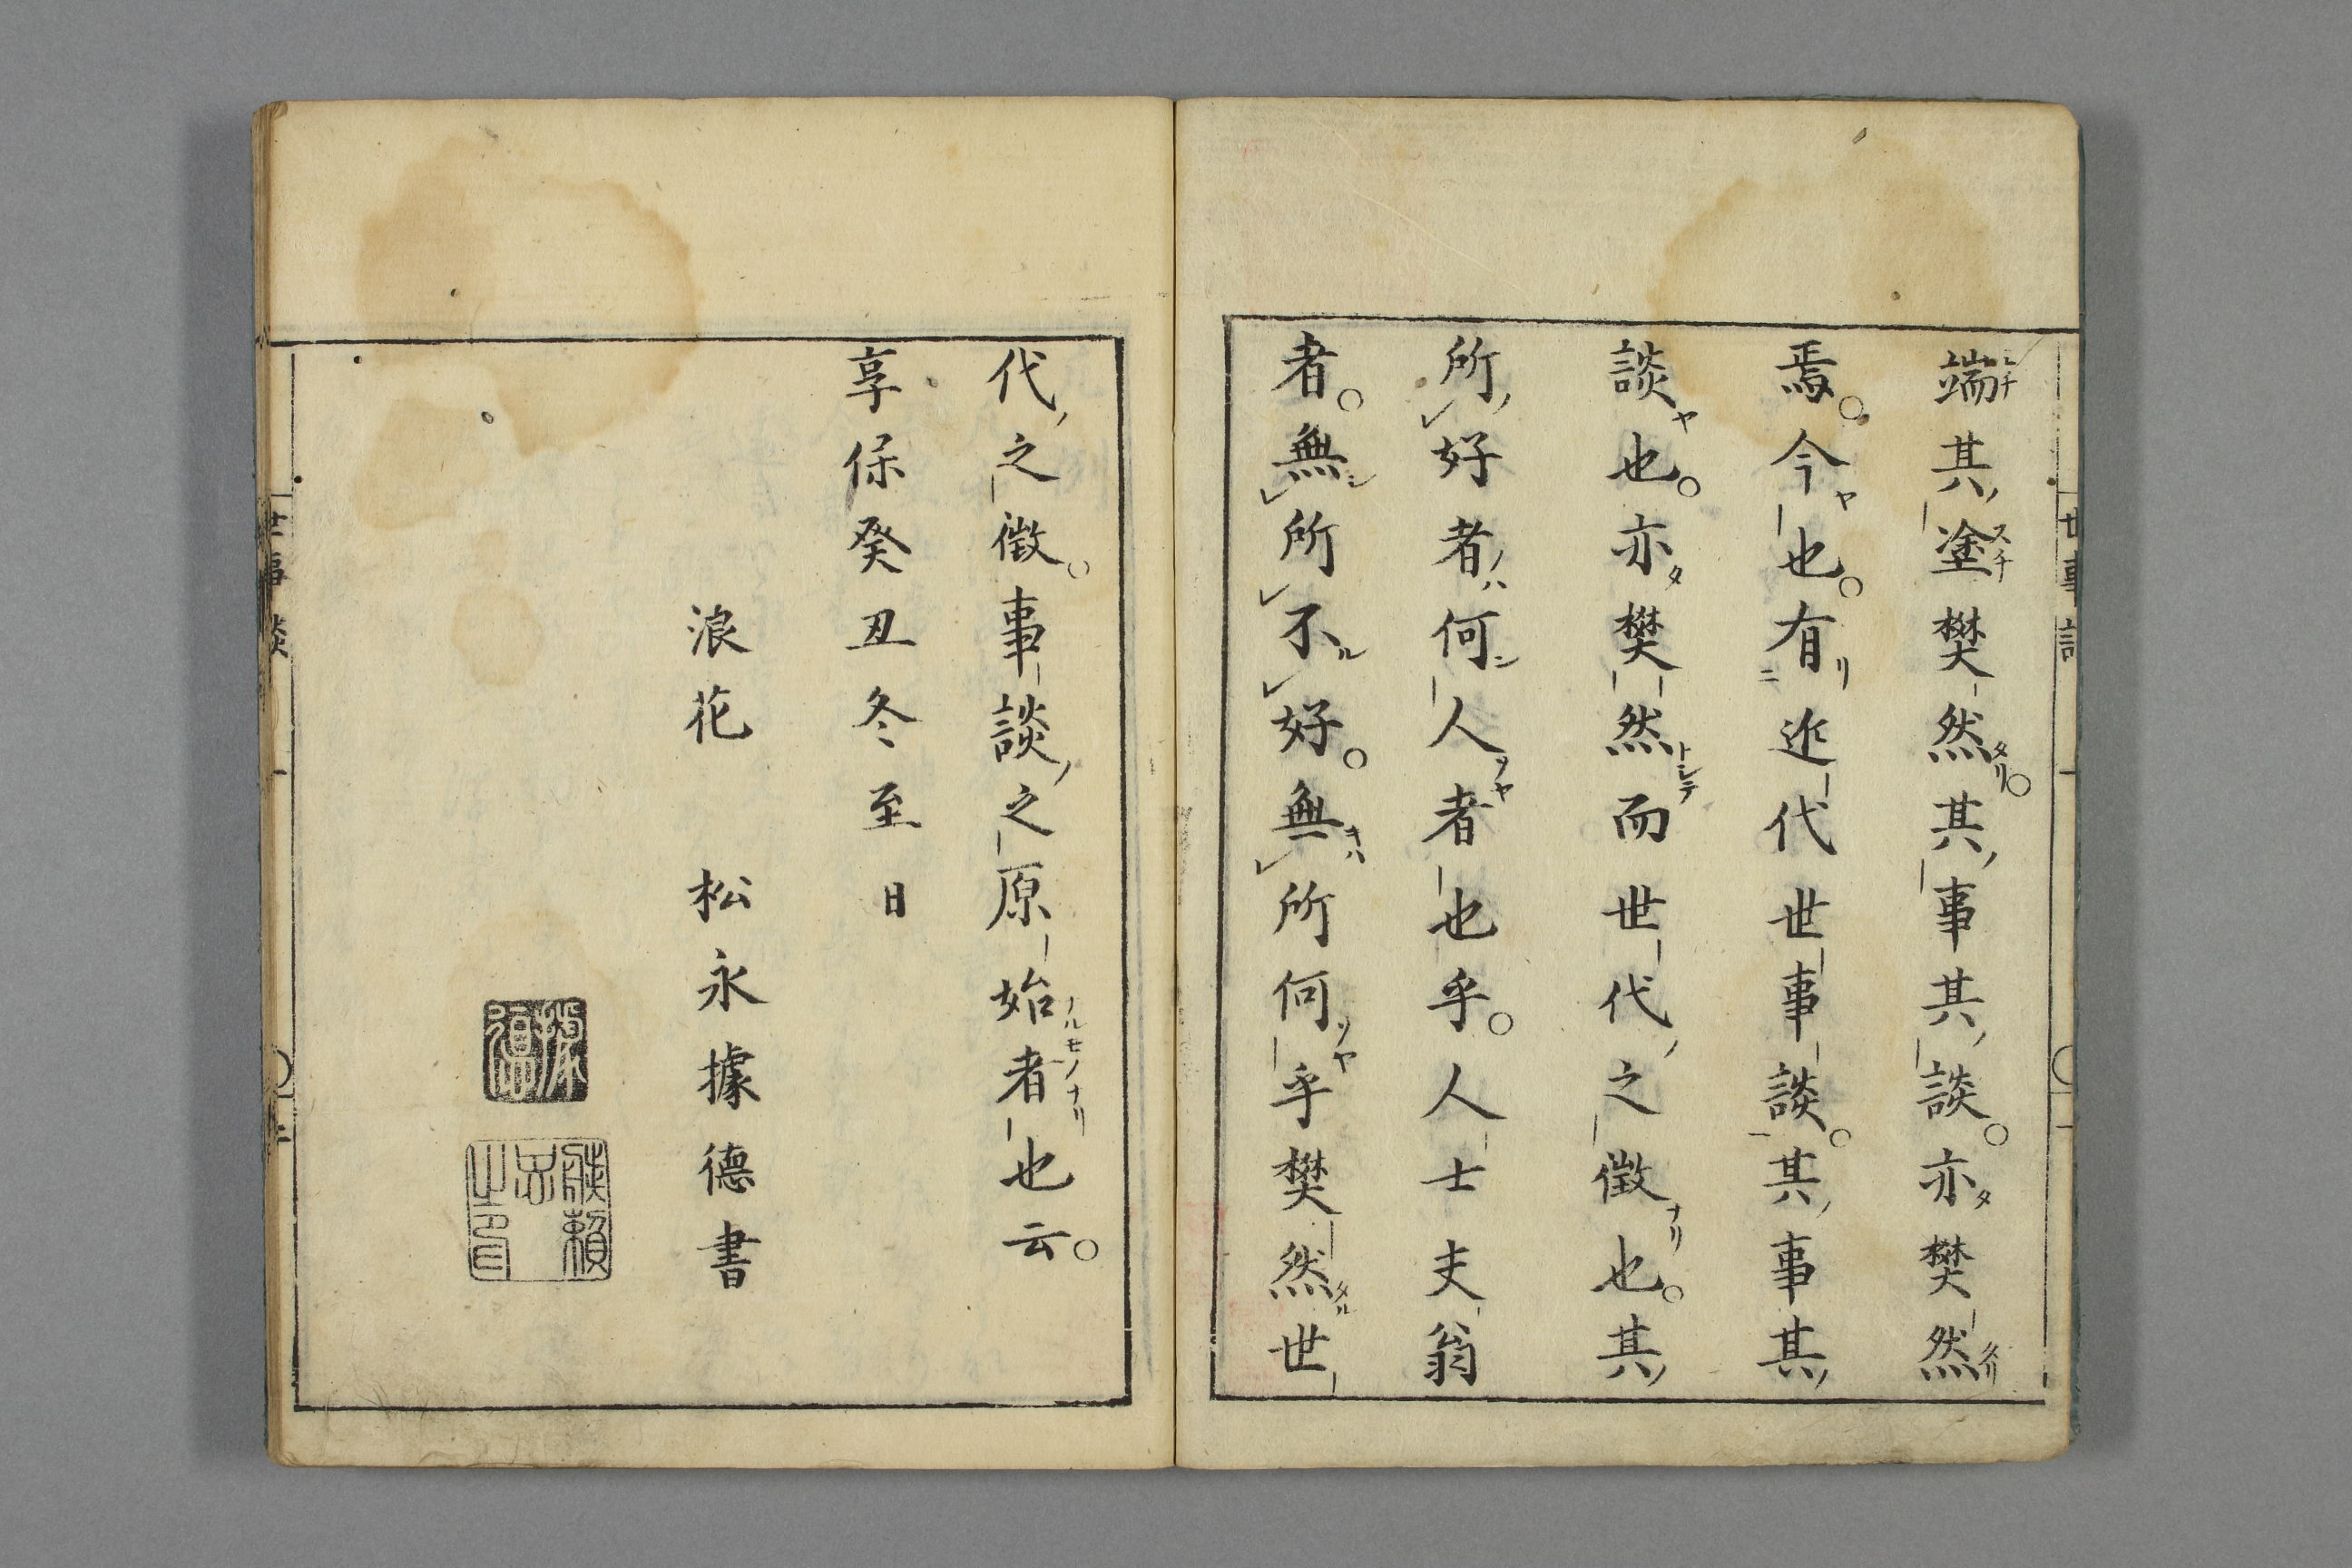 端其塗樊然其事其談亦樊然
焉今也有近代世事談其事其
談也亦樊然而世代之徵也其
所好者何人者也乎人士夫翁
者無所不好無所何乎樊然世
代之徵事談之原始者也云
享保癸丑冬至日
浪花 松永據德書